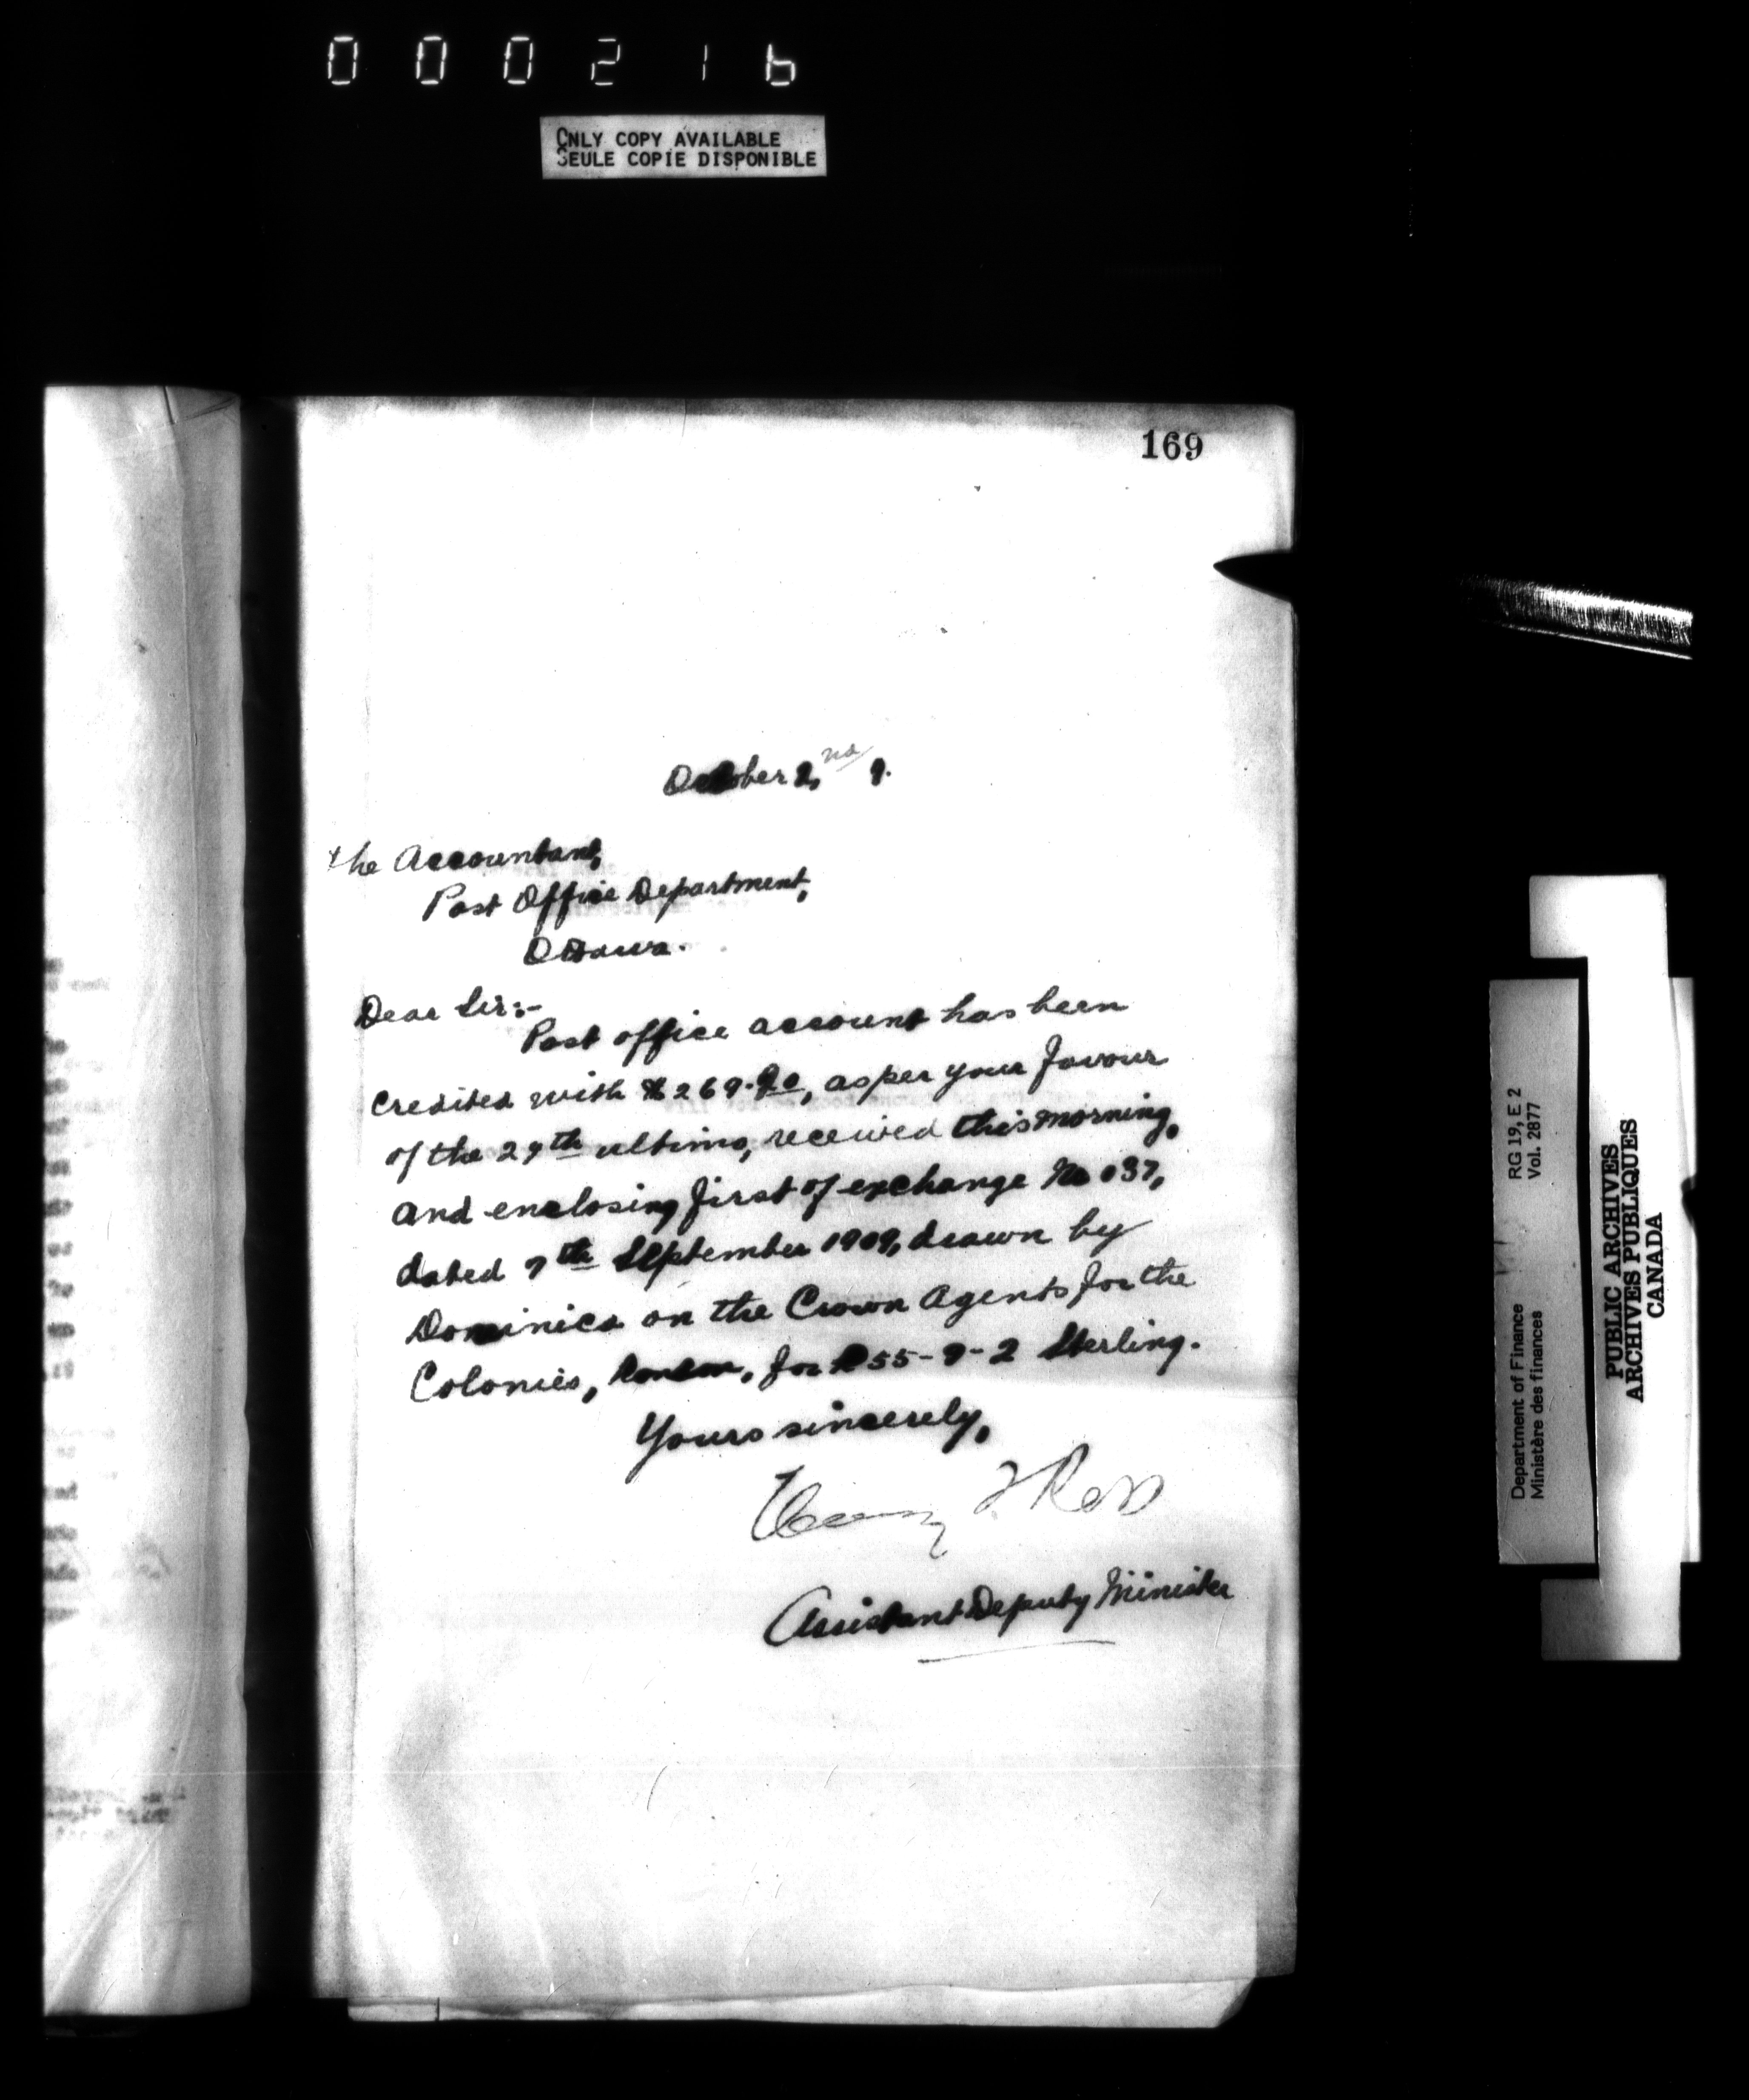 000216
ONLY COPY AVAILABLE
SEULE COPIE DISPONIBLE
169
October 2, nd 9.
the Accountant,
Post Office Department,
Ottawa.
Dear Sir:-
Post office account has been
credited with $269.90, as per your favour
of the 29th ultimo, received this morning,
and enclosing first of exchange No 037,
dated 7th September 1909, drawn by
Dominica on the Crown Agents for the
Colonies, London, for £55-9-2 Sterling.
Yours sincerely,
Henry T Ross
Assistant Deputy Minister
RG 19, E 2
Vol. 2877
Department of Finance
Ministère des finances
PUBLIC ARCHIVES
ARCHIVES PUBLIQUES
CANADA